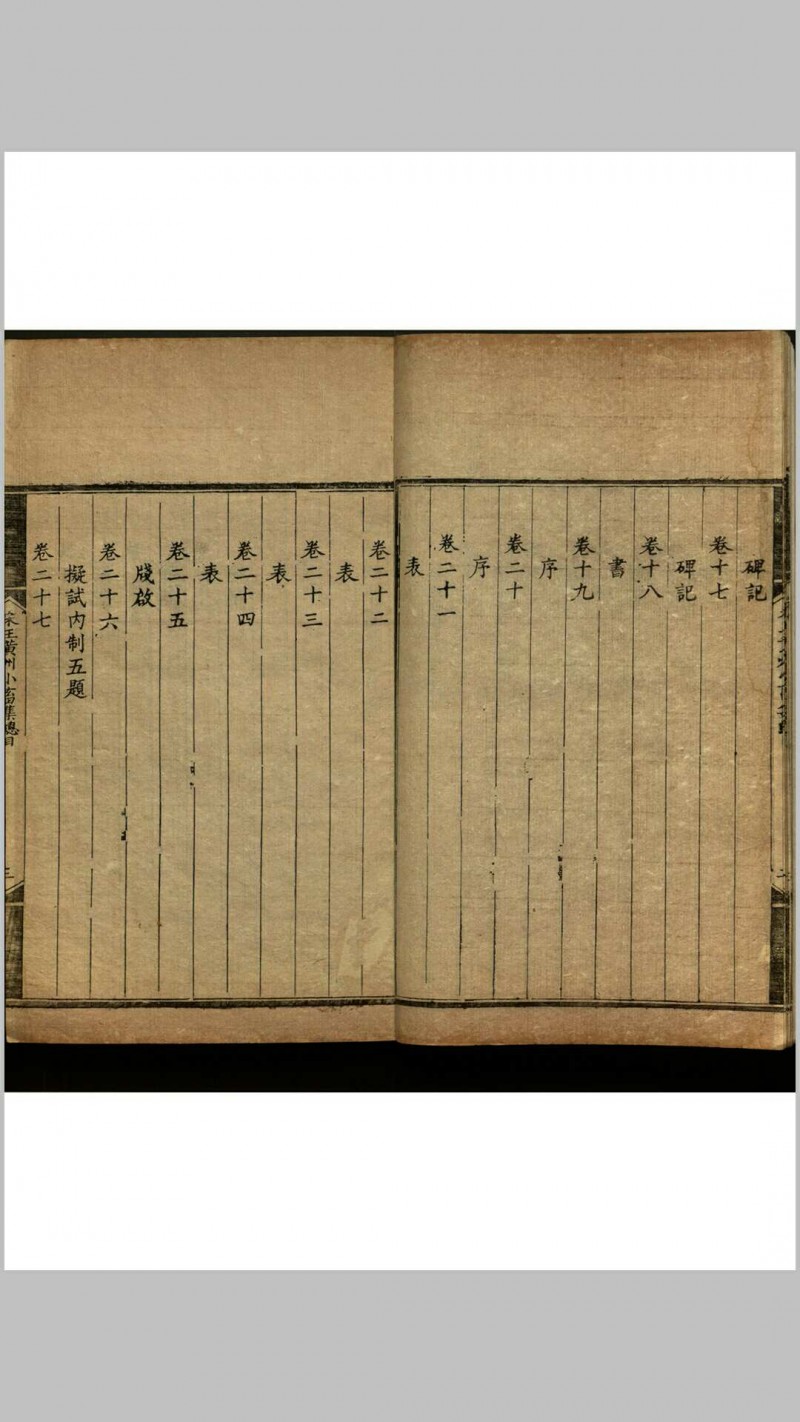 碑記
卷十七
碑記
卷十八
書
卷十九
序
卷二十
序
卷二十一
表
卷二十二
表
卷二十三
表
卷二十四
表
卷二十五
牋啟
卷二十六
擬試內制五題
卷二十七
王黃州小畜集總目
三